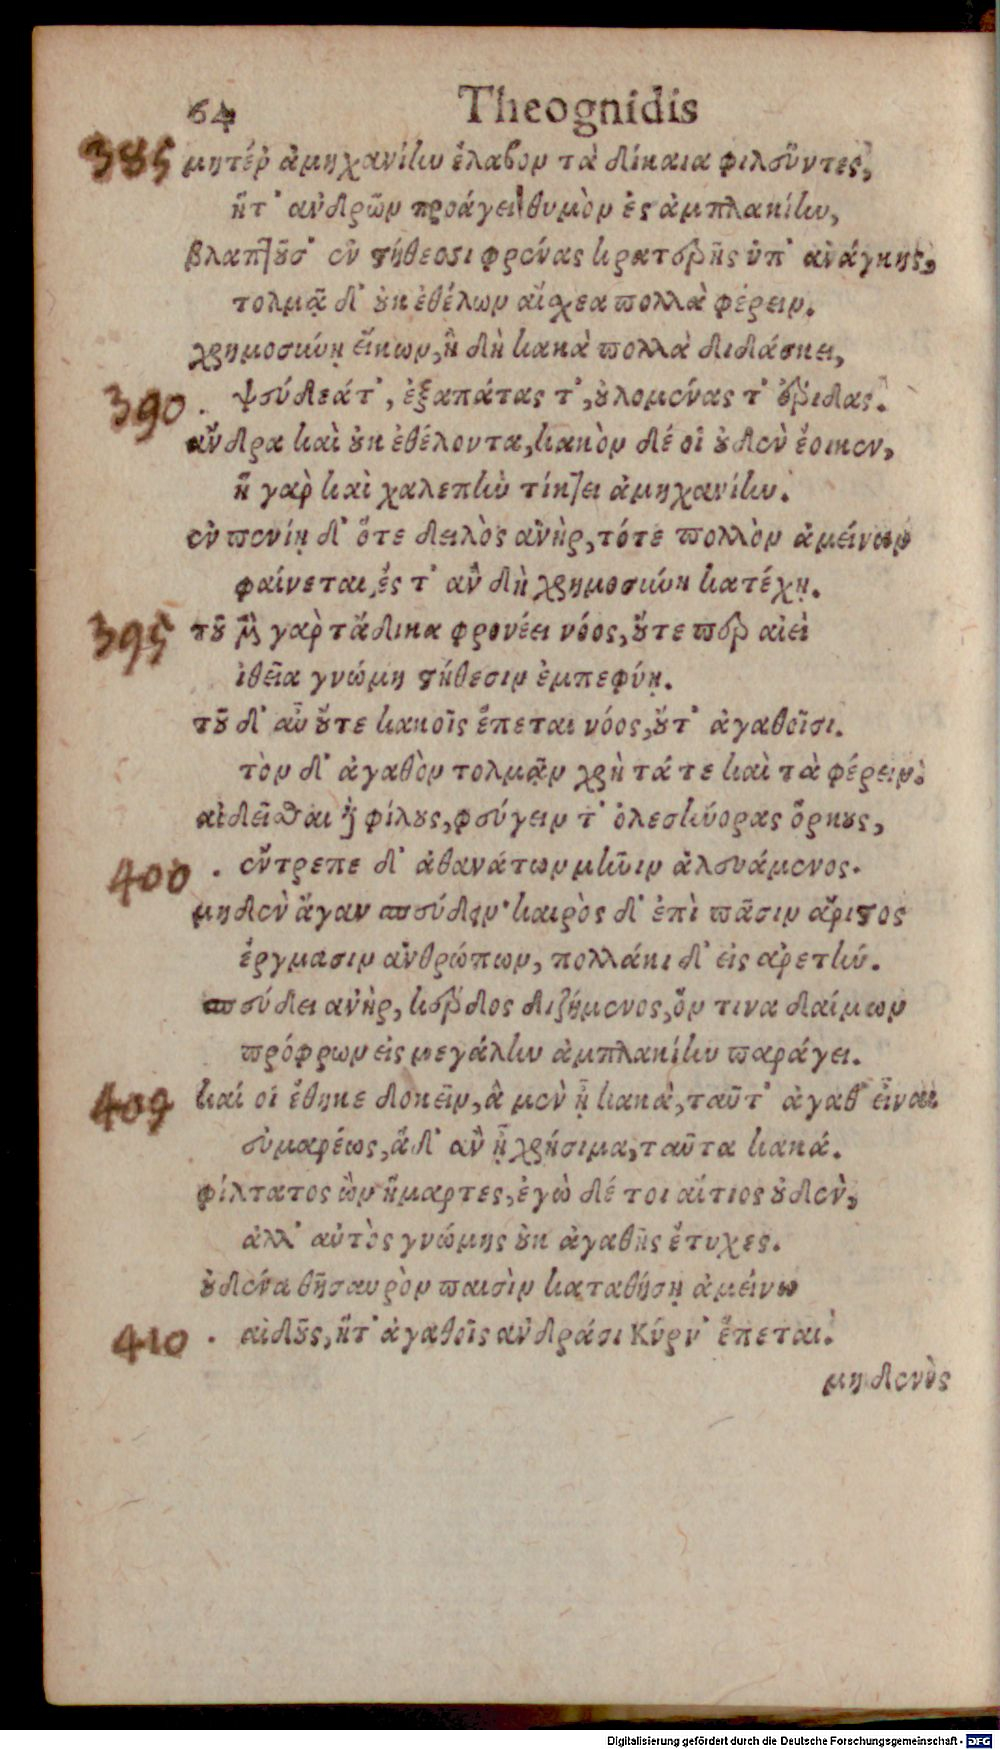 64 Theognidis
385 μητέρ ἀμηχανίην ἔλαβον τὰ δίκαια φιλοῦντες,
ἥτ' ἀνδρῶν προάγει θυμὸν ἐς ἀμπλακίην,
βλάπτουσ' ἐν στήθεσσι φρένας κρατερῆς ὑπ' ἀνάγκης,
τολμᾷ δ' οὐκ ἐθέλων αἴσχεα πολλὰ φέρειν.
χρημοσύνῃ εἴκων, ἣ δὴ κακὰ πολλὰ διδάσκει,
390 . ψεύδεά τ', ἐξαπάτας τ', οὐλομένας τ' ἔριδας.
ἄνδρα καὶ οὐκ ἐθέλοντα, κακὸν δέ οἱ οὐδὲν ἔοικεν,
ἣ γαρ καὶ χαλεπὴν τίκτει ἀμηχανίην.
ἐν πενίῃ δ' ὅτε δειλὸς ἀνὴρ, τότε πολλὸν ἀμείνων
φαίνεται, ἐς τ' ἂν δὴ χρημοσύνη κατέχῃ.
395 τοῦ μὲν γαρ τἄδικα φρονέει νόος, οὔτε περ αἰεὶ
ἰθεῖα γνώμη στήθεσιν ἐμπεφύῃ.
τοῦ δ' αὖ οὔτε κακοῖς ἕπεται νόος, οὔτ' ἀγαθοῖσι.
τὸν δ' ἀγαθὸν τολμᾷν χρὴ τά τε καὶ τὰ φέρειν.
αἰδεῖσθαι δὲ φίλους, φεύγειν τ' ὀλεσήνορας ὅρκους,
400 . ἔντρεπε δ' ἀθανάτων μῆνιν ἀλευάμενος.
μηδὲν ἄγαν σπεύδειν· καιρὸς δ' ἐπὶ πᾶσιν ἄριστος
ἔργμασιν ἀνθρώπων, πολλάκι δ' εἰς ἀρετὴν.
σπεύδει ἀνὴρ, κέρδος διζήμενος, ὅν τινα δαίμων
πρόφρων εἰς μεγάλην ἀμπλακίην παράγει.
409 καί οἱ ἔθηκε δοκεῖν, ἃ μὲν ᾖ κακὰ, ταῦτ' ἀγαθ' εἶναι
εὐμαρέως, ἃ δ' ἂν ᾖ χρήσιμα, ταῦτα κακά.
φίλτατος ὢν ἥμαρτες, ἐγὼ δέ τοι αἴτιος οὐδὲν,
ἀλλ' αὐτὸς γνώμης οὐκ ἀγαθῆς ἔτυχες.
οὐδένα θησαυρὸν παισὶν καταθήσῃ ἀμείνω
410 . αἰδοῦς, ἥτ' ἀγαθοῖς ἀνδράσι Κύρν' ἕπεται.
μηδενὸς
Digitalisierung gefördert durch die Deutsche Forschungsgemeinschaft - DFG